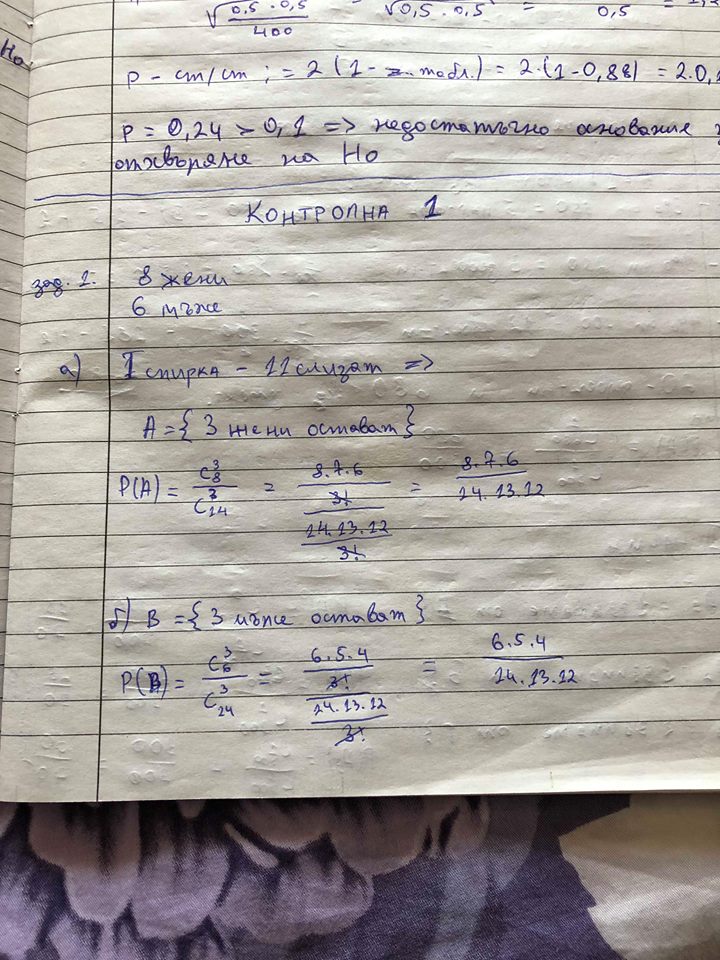 √(0,5 . 0,5 / 400) √0,5 . 0,5 = 0,5
Ho
p - ст/ст ; = 2 (1 - z табл.) = 2.(1-0,88) = 2.0,1
p = 0,24 > 0,1 => недостатъчно основание
отхвъряне на Ho
КОНТРОЛНА 1
зад. 1. 8 жени
6 мъже
а) I спирка - 11 слизат =>
A = { 3 жени остават }
P(A) = C₈³ / C₁₄³ = (8.7.6 / 3!) / (14.13.12 / 3!) = 8.7.6 / 14.13.12
б) B = { 3 мъже остават }
P(B) = C₆³ / C₁₄³ = (6.5.4 / 3!) / (14.13.12 / 3!) = 6.5.4 / 14.13.12